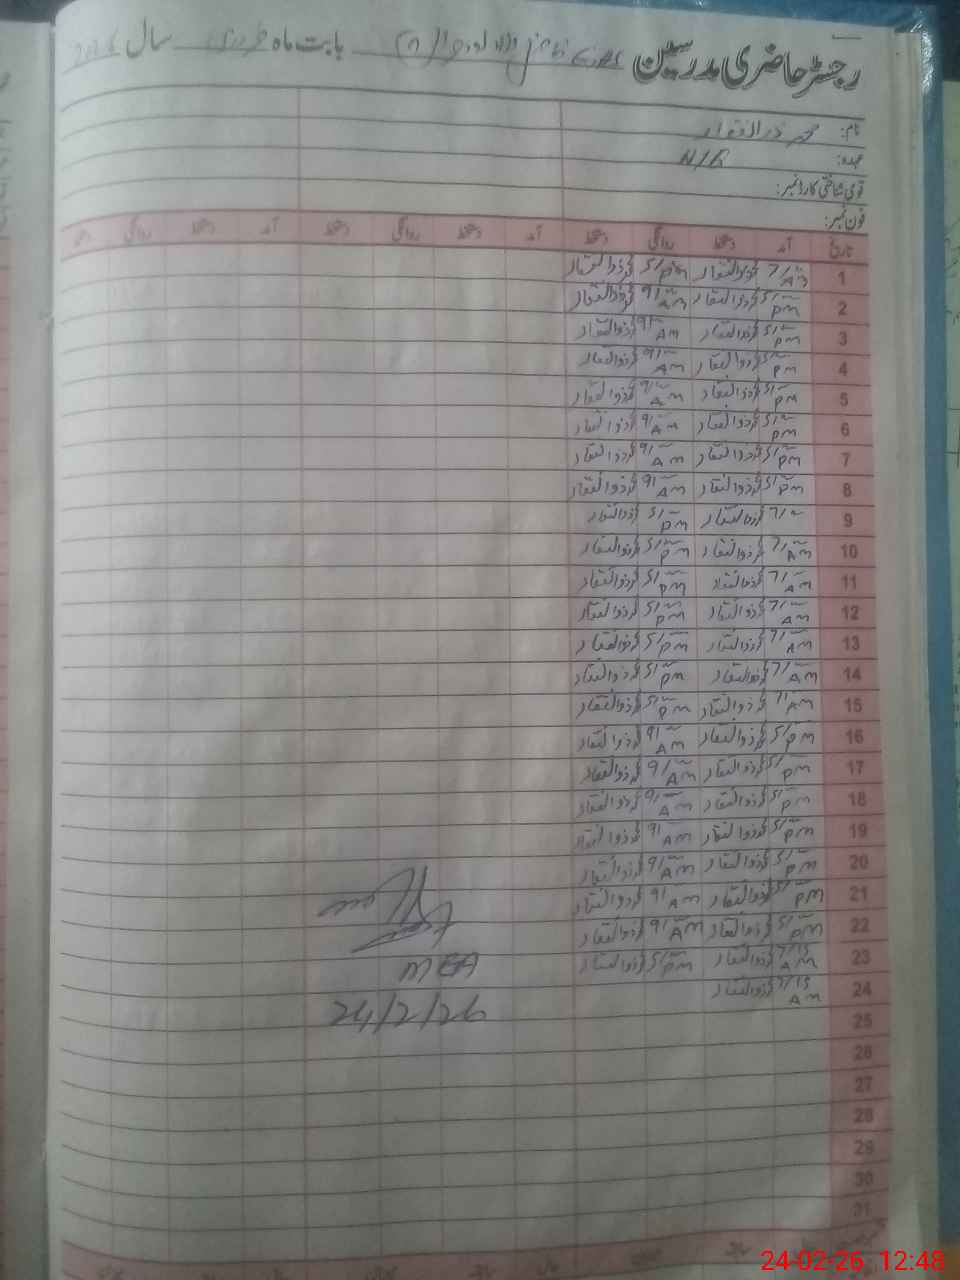 رجسٹر حاضری مدرسین بابت ماہ فروری سال 2026
نام: محمد ذوالفقار
عہدہ: N/Q
قومی شناختی کارڈ نمبر:
فون نمبر:
تاریخ آمد دستخط روانگی دستخط آمد دستخط روانگی دستخط آمد دستخط روانگی
1 7/AM ذوالفقار 5/PM ذوالفقار
2 5/PM ذوالفقار 9/AM ذوالفقار
3 5/PM ذوالفقار 9/AM ذوالفقار
4 5/PM ذوالفقار 9/AM ذوالفقار
5 5/PM ذوالفقار 9/AM ذوالفقار
6 5/PM ذوالفقار 9/AM ذوالفقار
7 5/PM ذوالفقار 9/AM ذوالفقار
8 5/PM ذوالفقار 9/AM ذوالفقار
9 7/ ذوالفقار 5/PM ذوالفقار
10 7/AM ذوالفقار 5/PM ذوالفقار
11 7/AM ذوالفقار 5/PM ذوالفقار
12 7/AM ذوالفقار 5/PM ذوالفقار
13 7/AM ذوالفقار 5/PM ذوالفقار
14 7/AM ذوالفقار 5/PM ذوالفقار
15 7/AM ذوالفقار 5/PM ذوالفقار
16 5/PM ذوالفقار 9/AM ذوالفقار
17 5/PM ذوالفقار 9/AM ذوالفقار
18 5/PM ذوالفقار 9/AM ذوالفقار
19 5/PM ذوالفقار 9/AM ذوالفقار
20 5/PM ذوالفقار 9/AM ذوالفقار
21 5/PM ذوالفقار 9/AM ذوالفقار
22 5/PM ذوالفقار 9/AM ذوالفقار
23 7/15 AM ذوالفقار 5/PM ذوالفقار
MEA
24 7/15 AM ذوالفقار
24/2/26
25
26
27
28
29
30
31
24-02-26 12:48